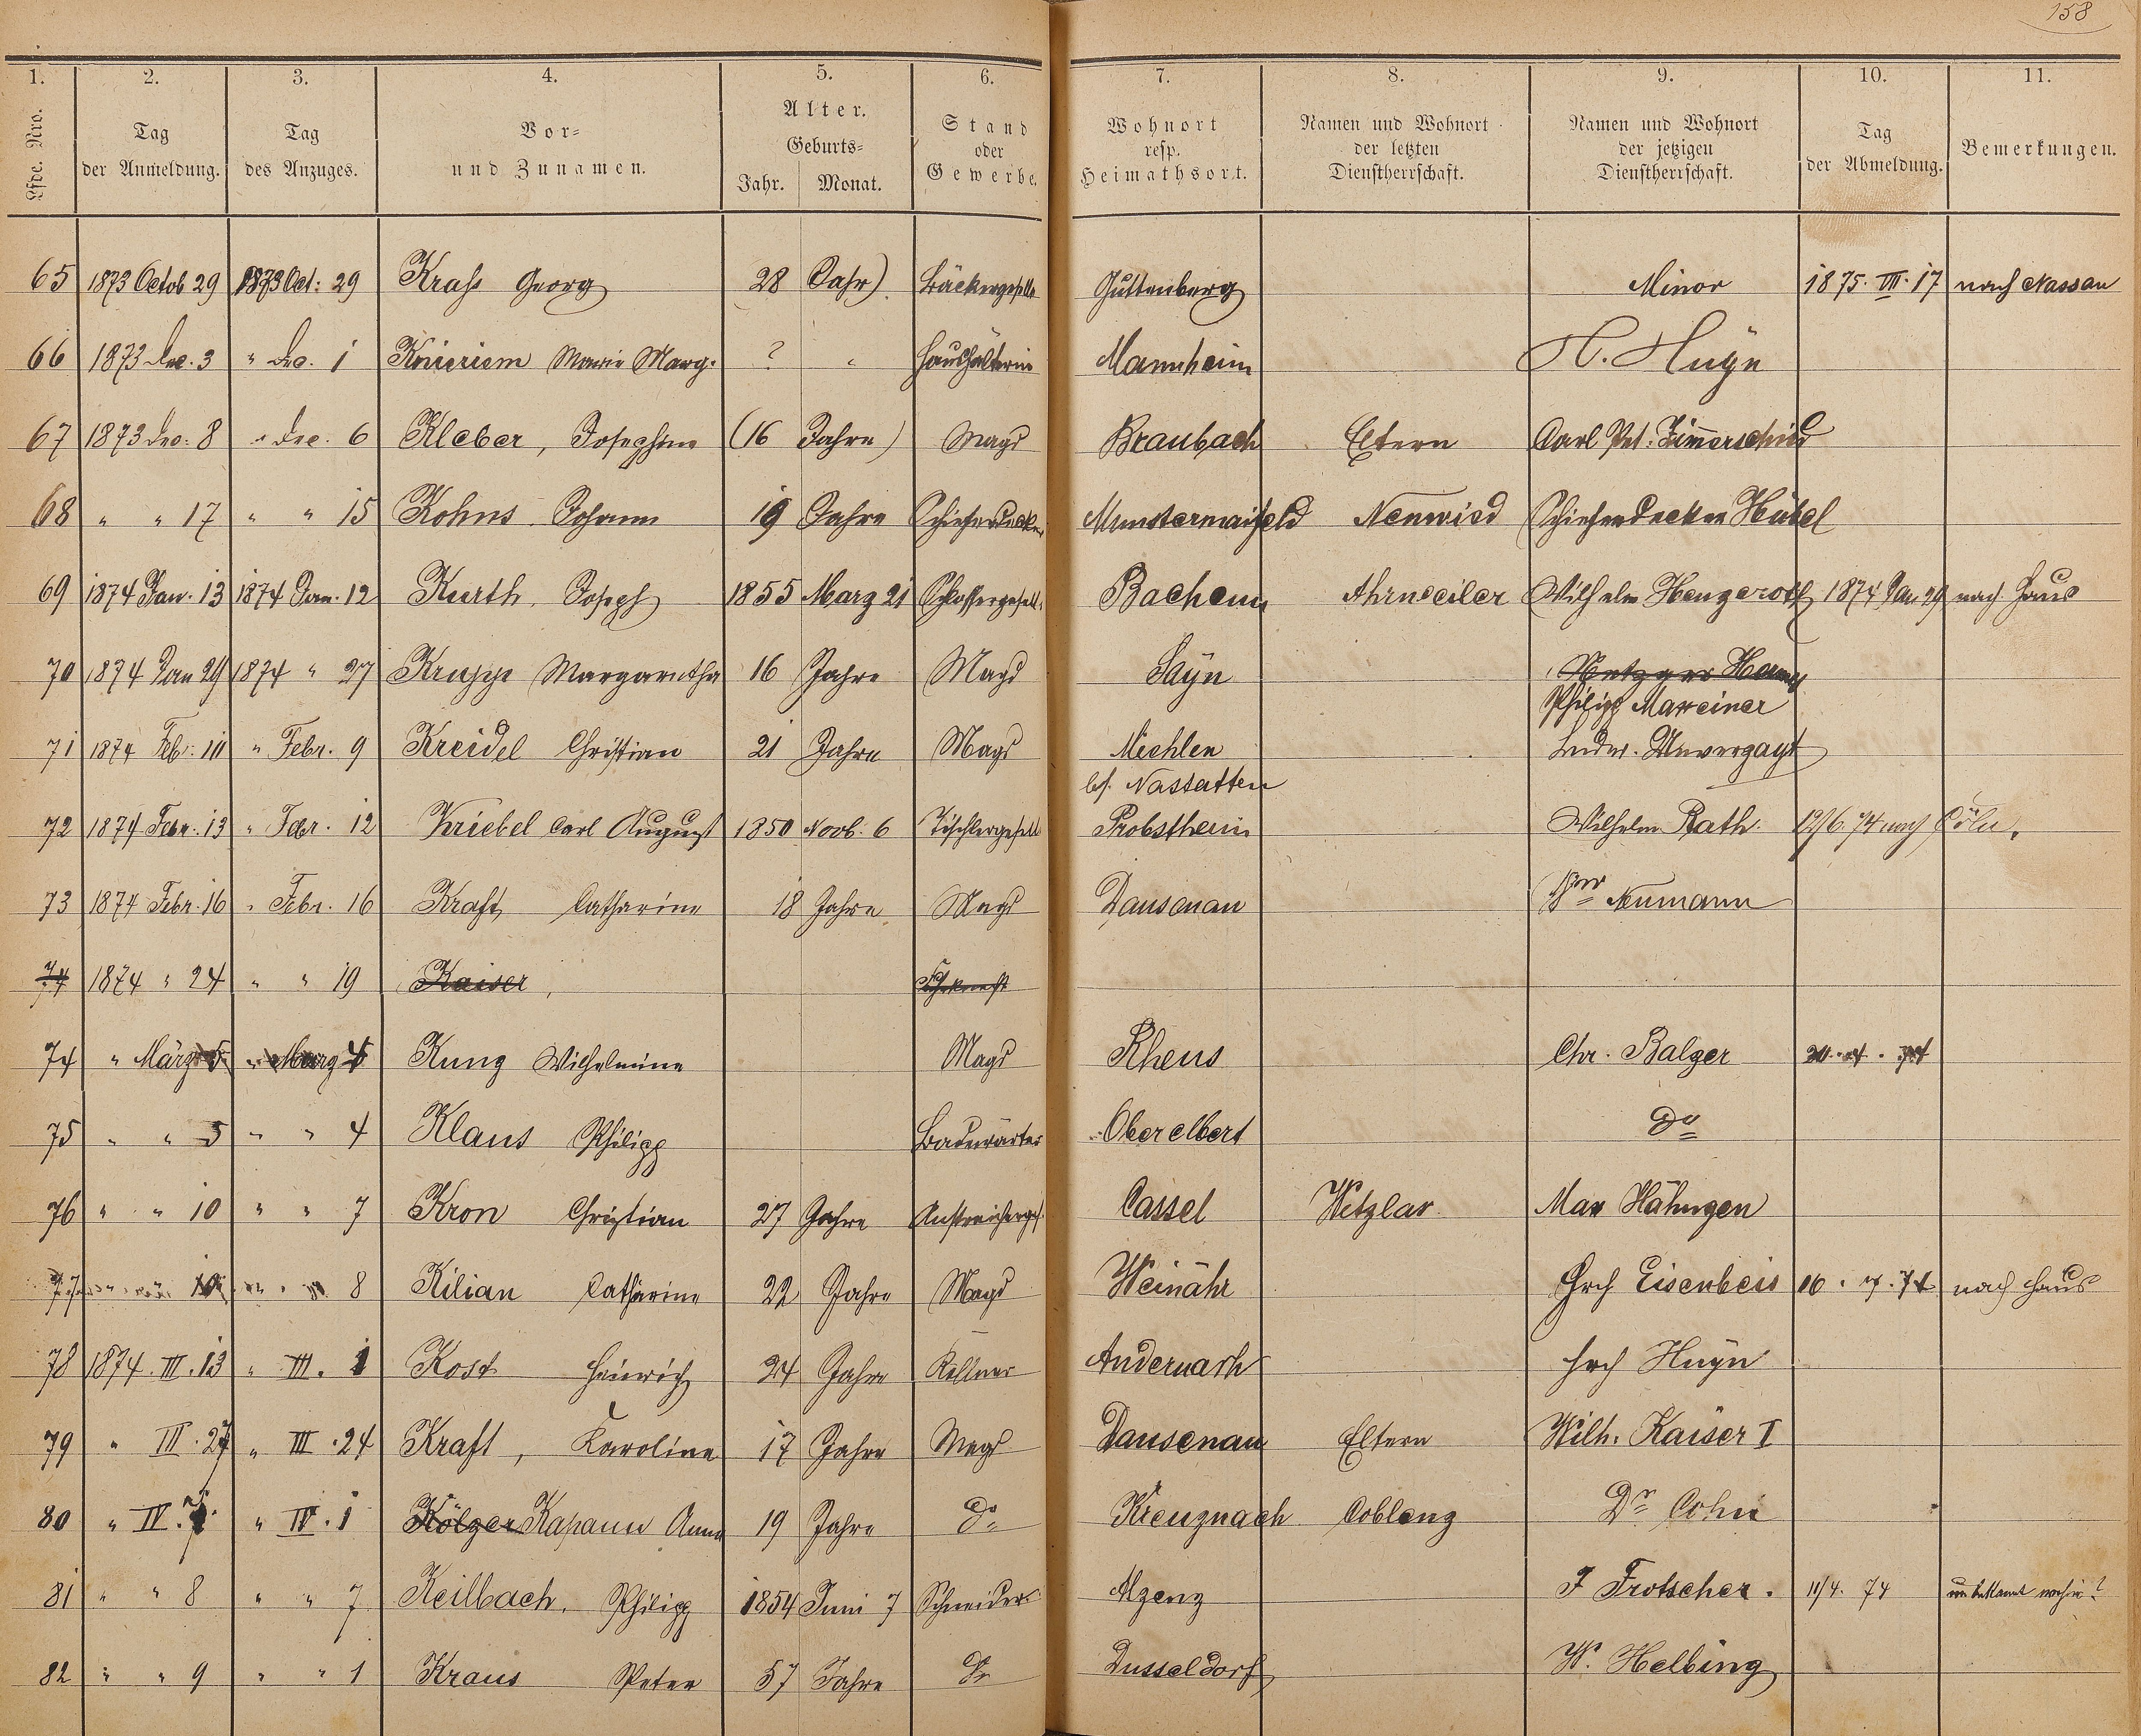 158
1. 2. 3. 4. 5. 6. 7. 8. 9. 10. 11.
Lfde. Nro. Tag der Anmeldung. Tag des Anzuges. Vor- und Zunamen. Alter. Geburts- Jahr. Monat. Stand oder Gewerbe. Wohnort resp. Heimathsort. Namen und Wohnort der letzten Dienstherrschaft. Namen und Wohnort der jetzigen Dienstherrschaft. Tag der Abmeldung. Bemerkungen.
65 1873 Octob 29 1873 Oct: 29 Krahs Georg 28 Jahr) Bäckergeselle Guttenberg Minor 1875. III. 17 nach Nassau
66 1873 Dec. 3 " Dec. 1 Knieriem Marie Marg. ? " Haushälterin Mannheim H. Huÿn
67 1873 Dec: 8 " Dec. 6 Kleber, Josephine (16 Jahre) Magd Braubach Eltern Carl Pet. Zimerschied
68 " " 17 " " 15 Kohns Johann 19 Jahre Schieferdecker Munstermaifeld Neuwied Schieferdecker Hübel
69 1874 Jan. 13 1874 Jan. 12 Kurth Joseph 1855 Marz 21 Schlossergesell. Bachem Ahrweiler Wilhelm Hengeroth 1874 Jan 29 nach Haus
70 1874 Jan 29 1874 " 27 Kruppe Margaretha 16 Jahre Magd Saÿn Metzger
Philipp Maxeiner
71 1874 Feb: 10 " Febr. 9 Kreidel Christian 21 Jahre Magd Miehlen Ludw. Unverzagt
bei Nastatten
72 1874 Febr. 13 " Febr. 12 Kriebel Carl August 1850 Novb. 6 Tischlergesell Probstheim Wilhelm Rath 12/6 74 nach Cöln.
73 1874 Febr. 16 " Febr. 16 Kraft Catharine 18 Jahre Magd Dausenau Neumann
74 1874 " 24 " " 19 Kaiser,
74 " März 5 " Marz 4 Kung Wilhelmine Magd Rhens Chr. Balzer
75 " " 5 " " 4 Klaus Philipp Badewärter Oberelbert do
76 " " 10 " " 7 Kron Christian 27 Jahre Anstreicherges. Cassel Wetzlar Max Hähngen
77 10 " " 8 Kilian Catharine 22 Jahre Magd Weinähr Hrch Eisenbeis nach Haus
78 1874. III. 13 " III. 1 Kost Heinrich 24 Jahre Kellner Andernach Hrch Huÿn
79 " III. 27 " III. 24 Kraft, Karoline 17 Jahre Magd Dausenau Eltern Wilh. Kaiser I
80 " IV. " IV. 1 Kölzer Kapaun Anna 19 Jahre do Kreuznach Coblenz Dr Cohn
81 " " 8 " " 7 Keilbach, Philipp 1854 Juni 7 Schneider Alzenz J Frotscher. 11/4. 74 unbekannt wohin?
82 " " 9 " " 1 Kraus Peter 57 Jahre do Dusseldorf W. Helbing